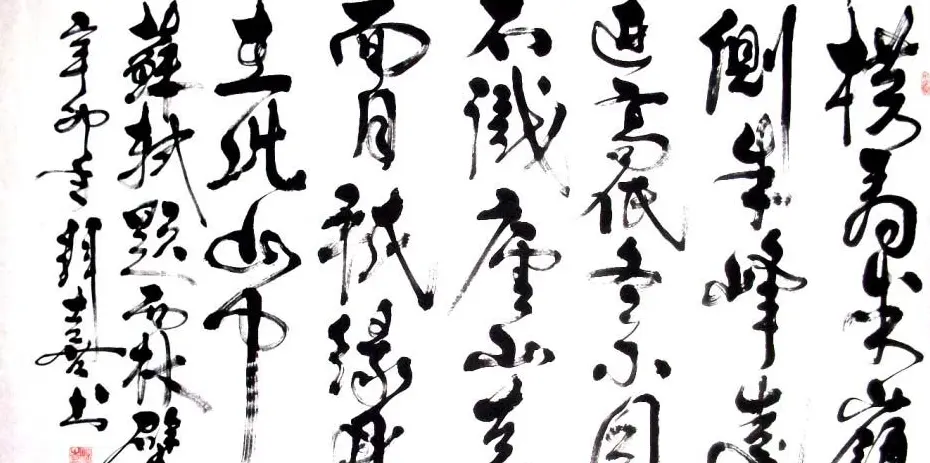 橫看成嶺
側成峰遠
近高低各不同
不識廬山真
面目祇緣身
在此山中
蘇軾題西林壁
辛卯 喜書